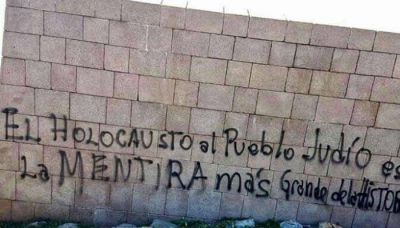 EL HOLOCAUSTO al Pueblo Judío es
La MENTIRA más Grande de la HISTOR